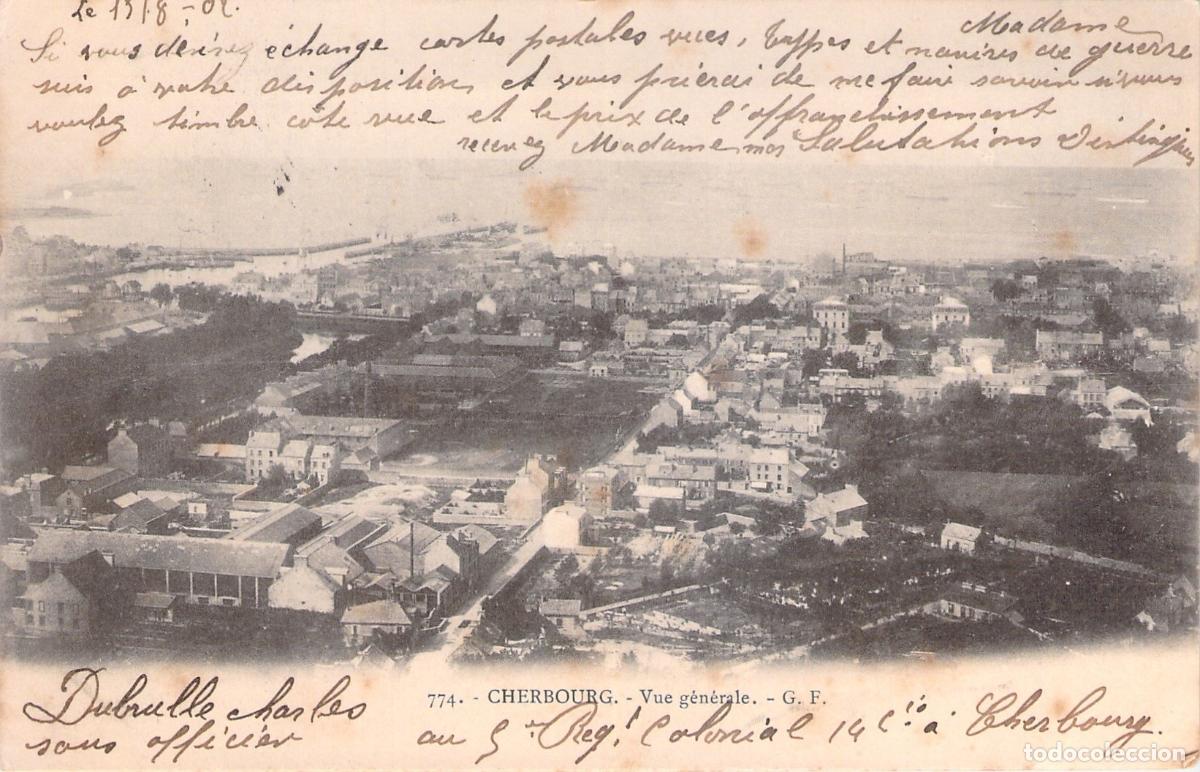 Le 13/8 - 02.
Madame
Si vous désirez échange cartes postales vues, types et navires de guerre
suis à votre disposition et vous prierai de me faire savoir si vous
voulez timbre côté vue et le prix de l'affranchissement
recevez Madame mes Salutations Distinguées
774. - CHERBOURG. - Vue générale. - G. F.
Dubrulle charles
sous officier au 5e Regt Colonial 14 Cie à Cherbourg.
todocoleccion